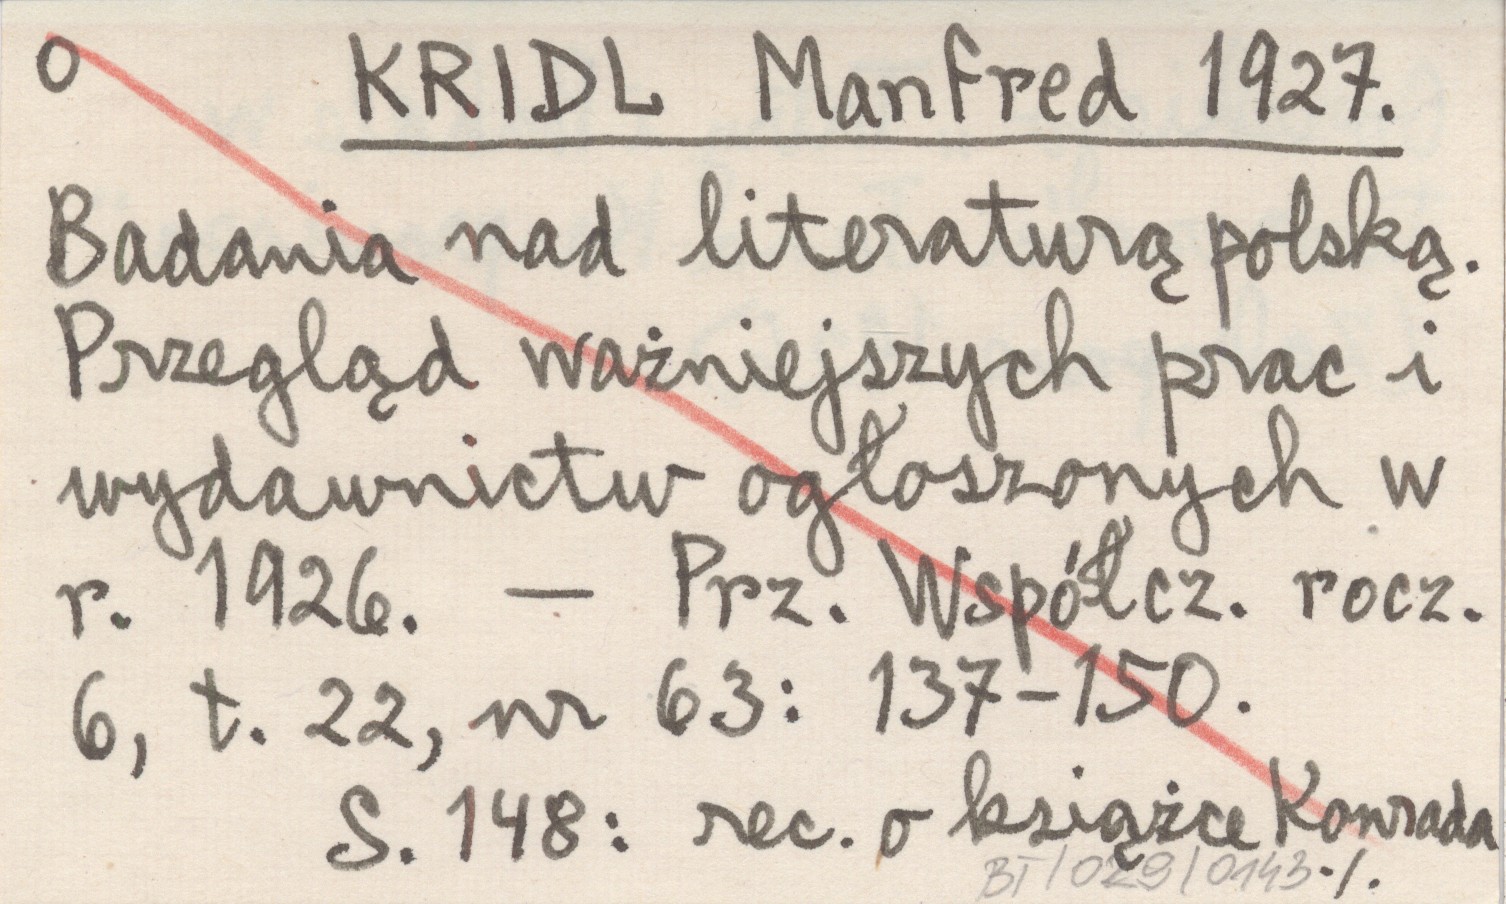 o KRIDL Manfred 1927.
Badania nad literaturą polską.
Przegląd ważniejszych prac i
wydawnictw ogłoszonych w
r. 1926. — Prz. Współcz. rocz.
6, t. 22, nr 63: 137-150.
S. 148: rec. o książce Konrada
BT/029/0143 ·/.